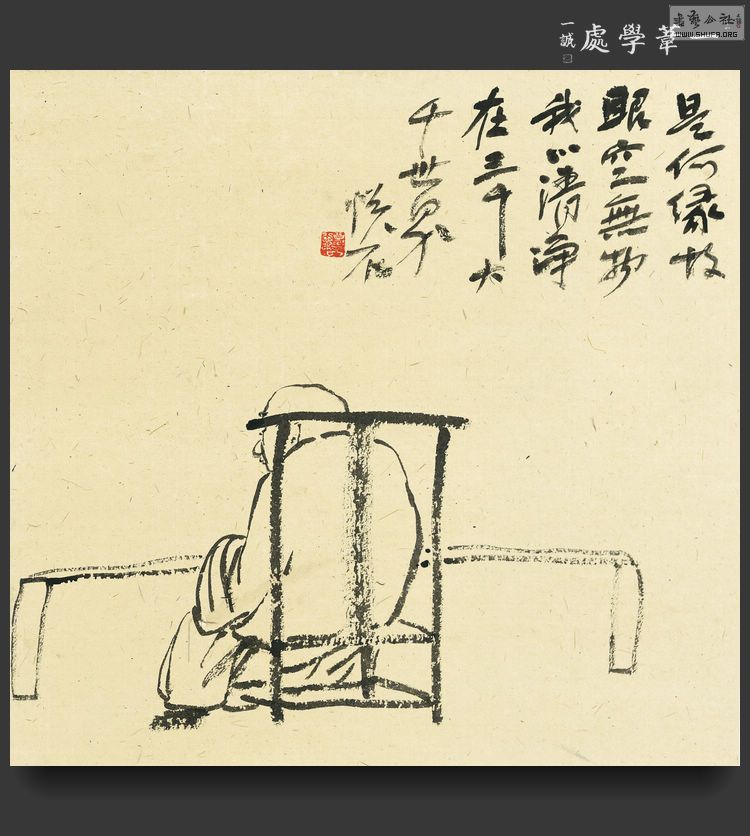 一葦學處
一誠
書藝公社
WWW.SHUFA.ORG
是何緣故
眼空無物
我心清淨
在三千大
千世界